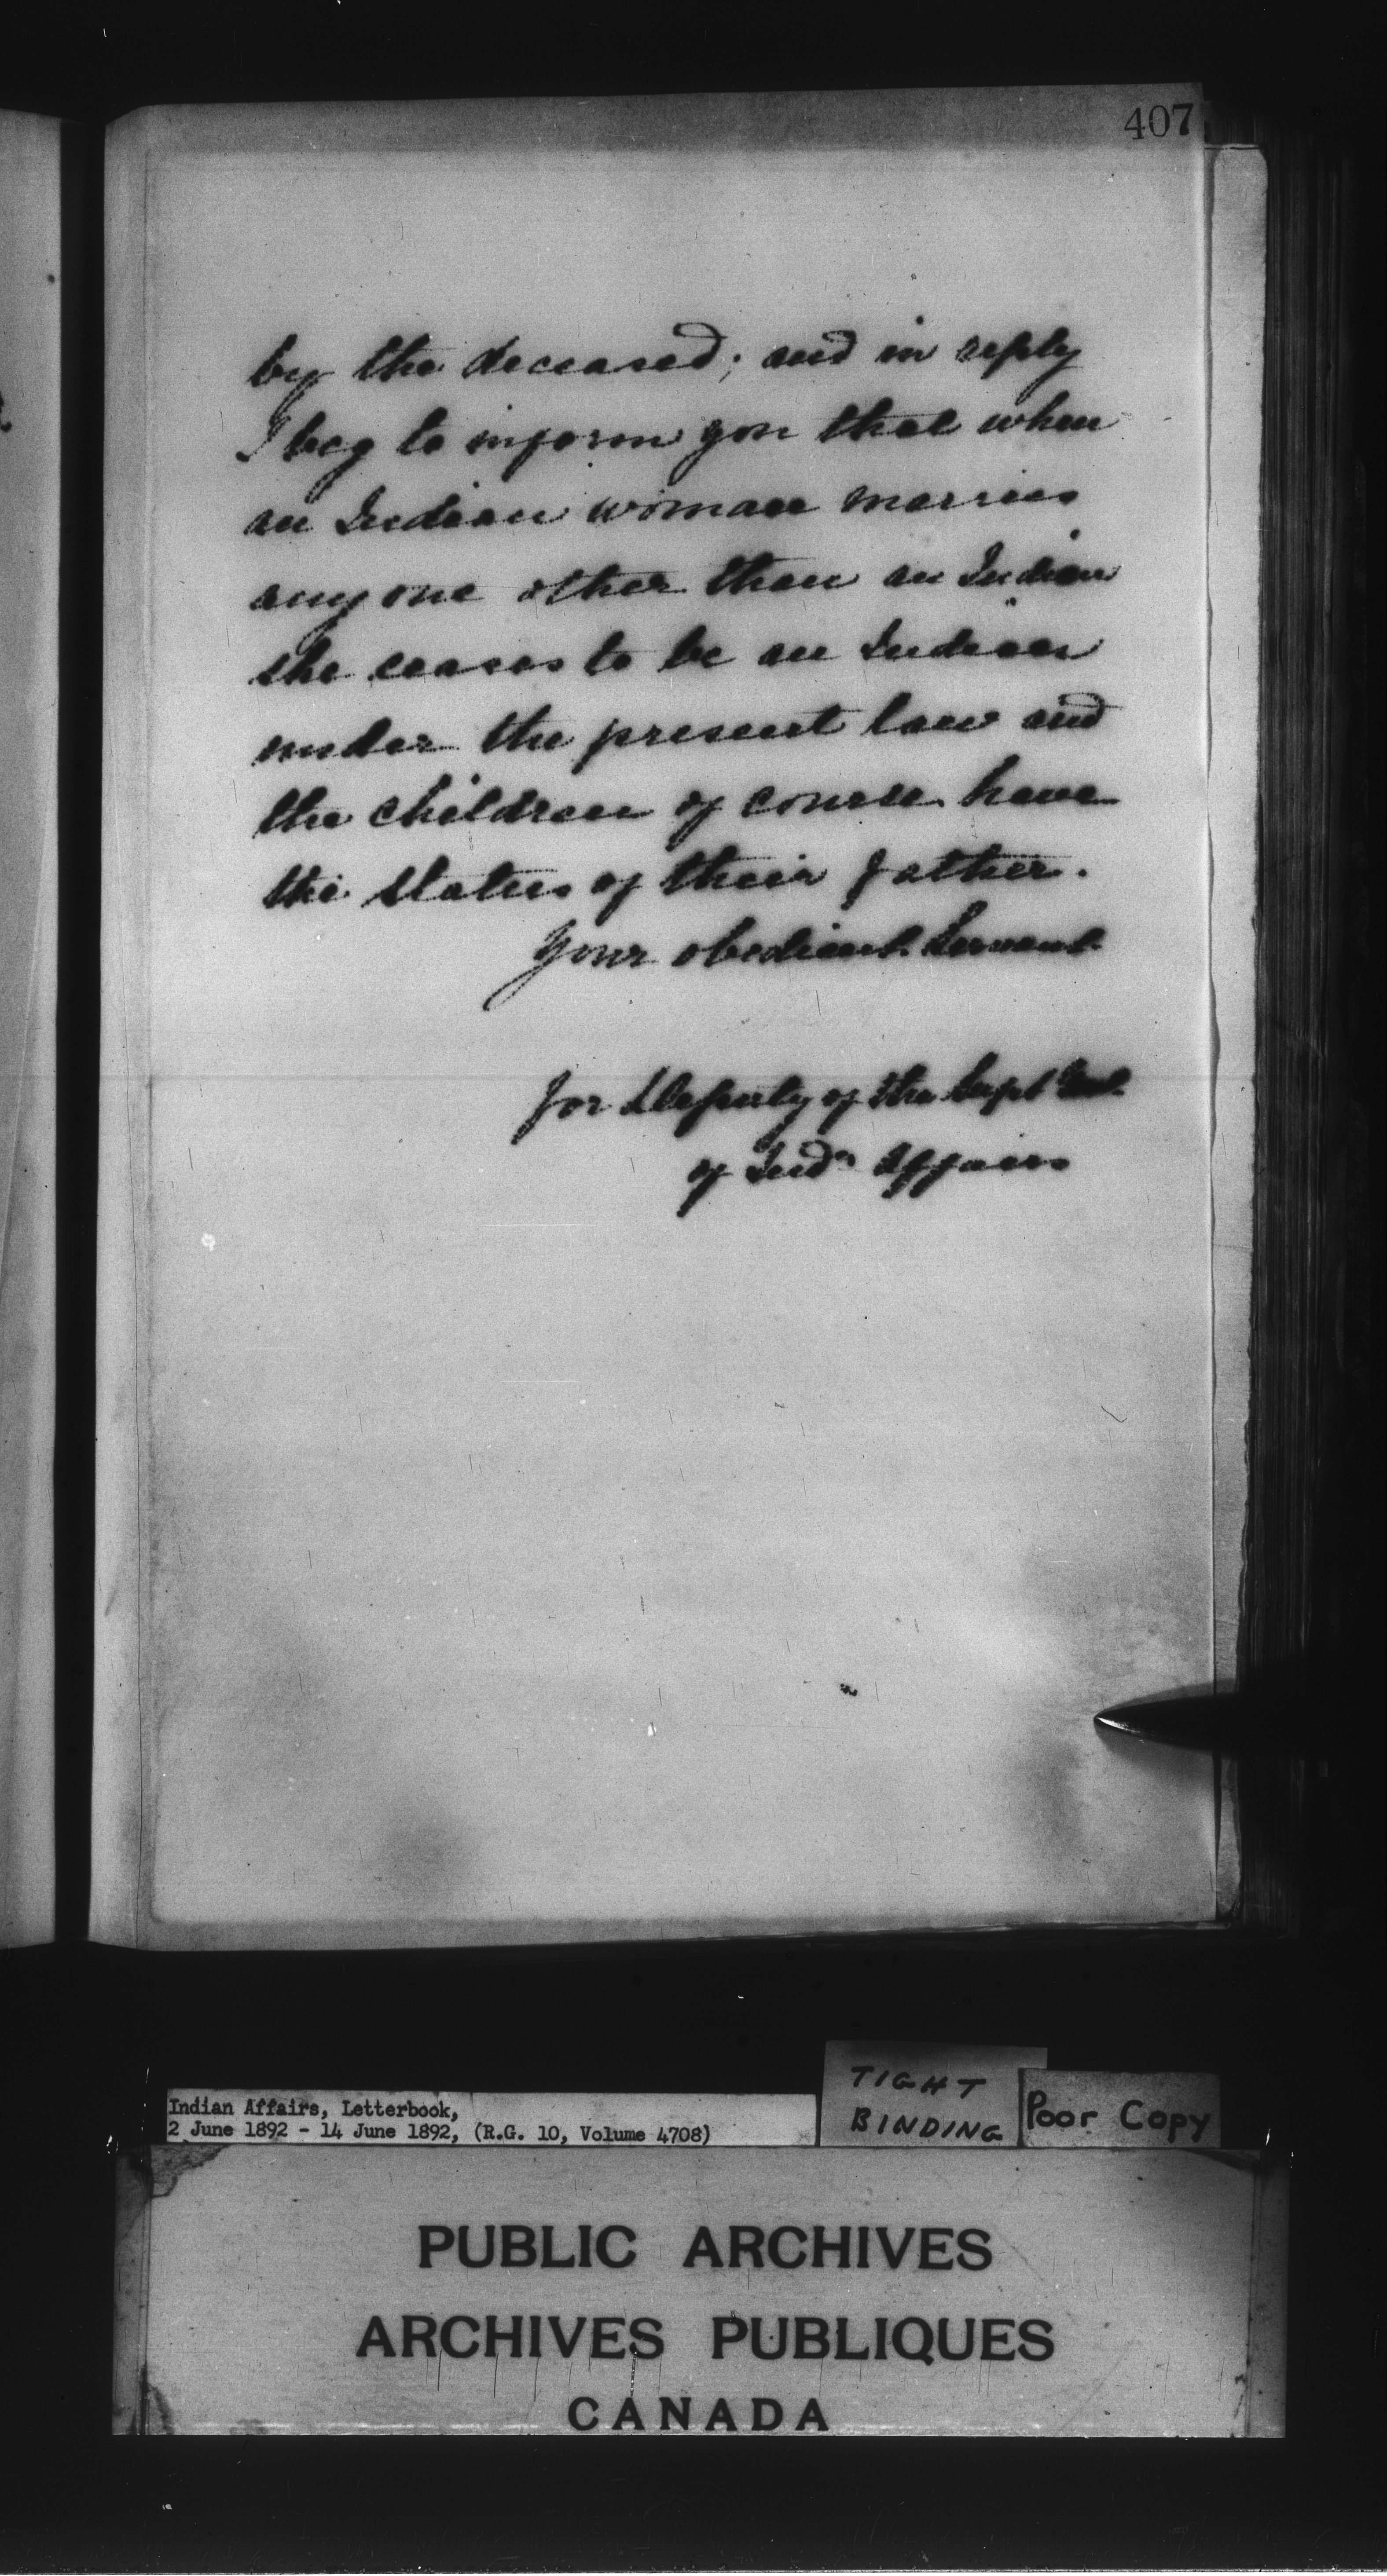 407
by the deceased; and in reply
I beg to inform you that when
an Indian woman marries
any one other than an Indian
she ceases to be an Indian
under the present law and
the children of course have
the status of their father.
Your obedient Servant
for Deputy of the Supt Genl.
of Indn Affairs
TIGHT
BINDING
Poor Copy
Indian Affairs, Letterbook,
2 June 1892 - 14 June 1892, (R.G. 10, Volume 4708)
PUBLIC ARCHIVES
ARCHIVES PUBLIQUES
CANADA